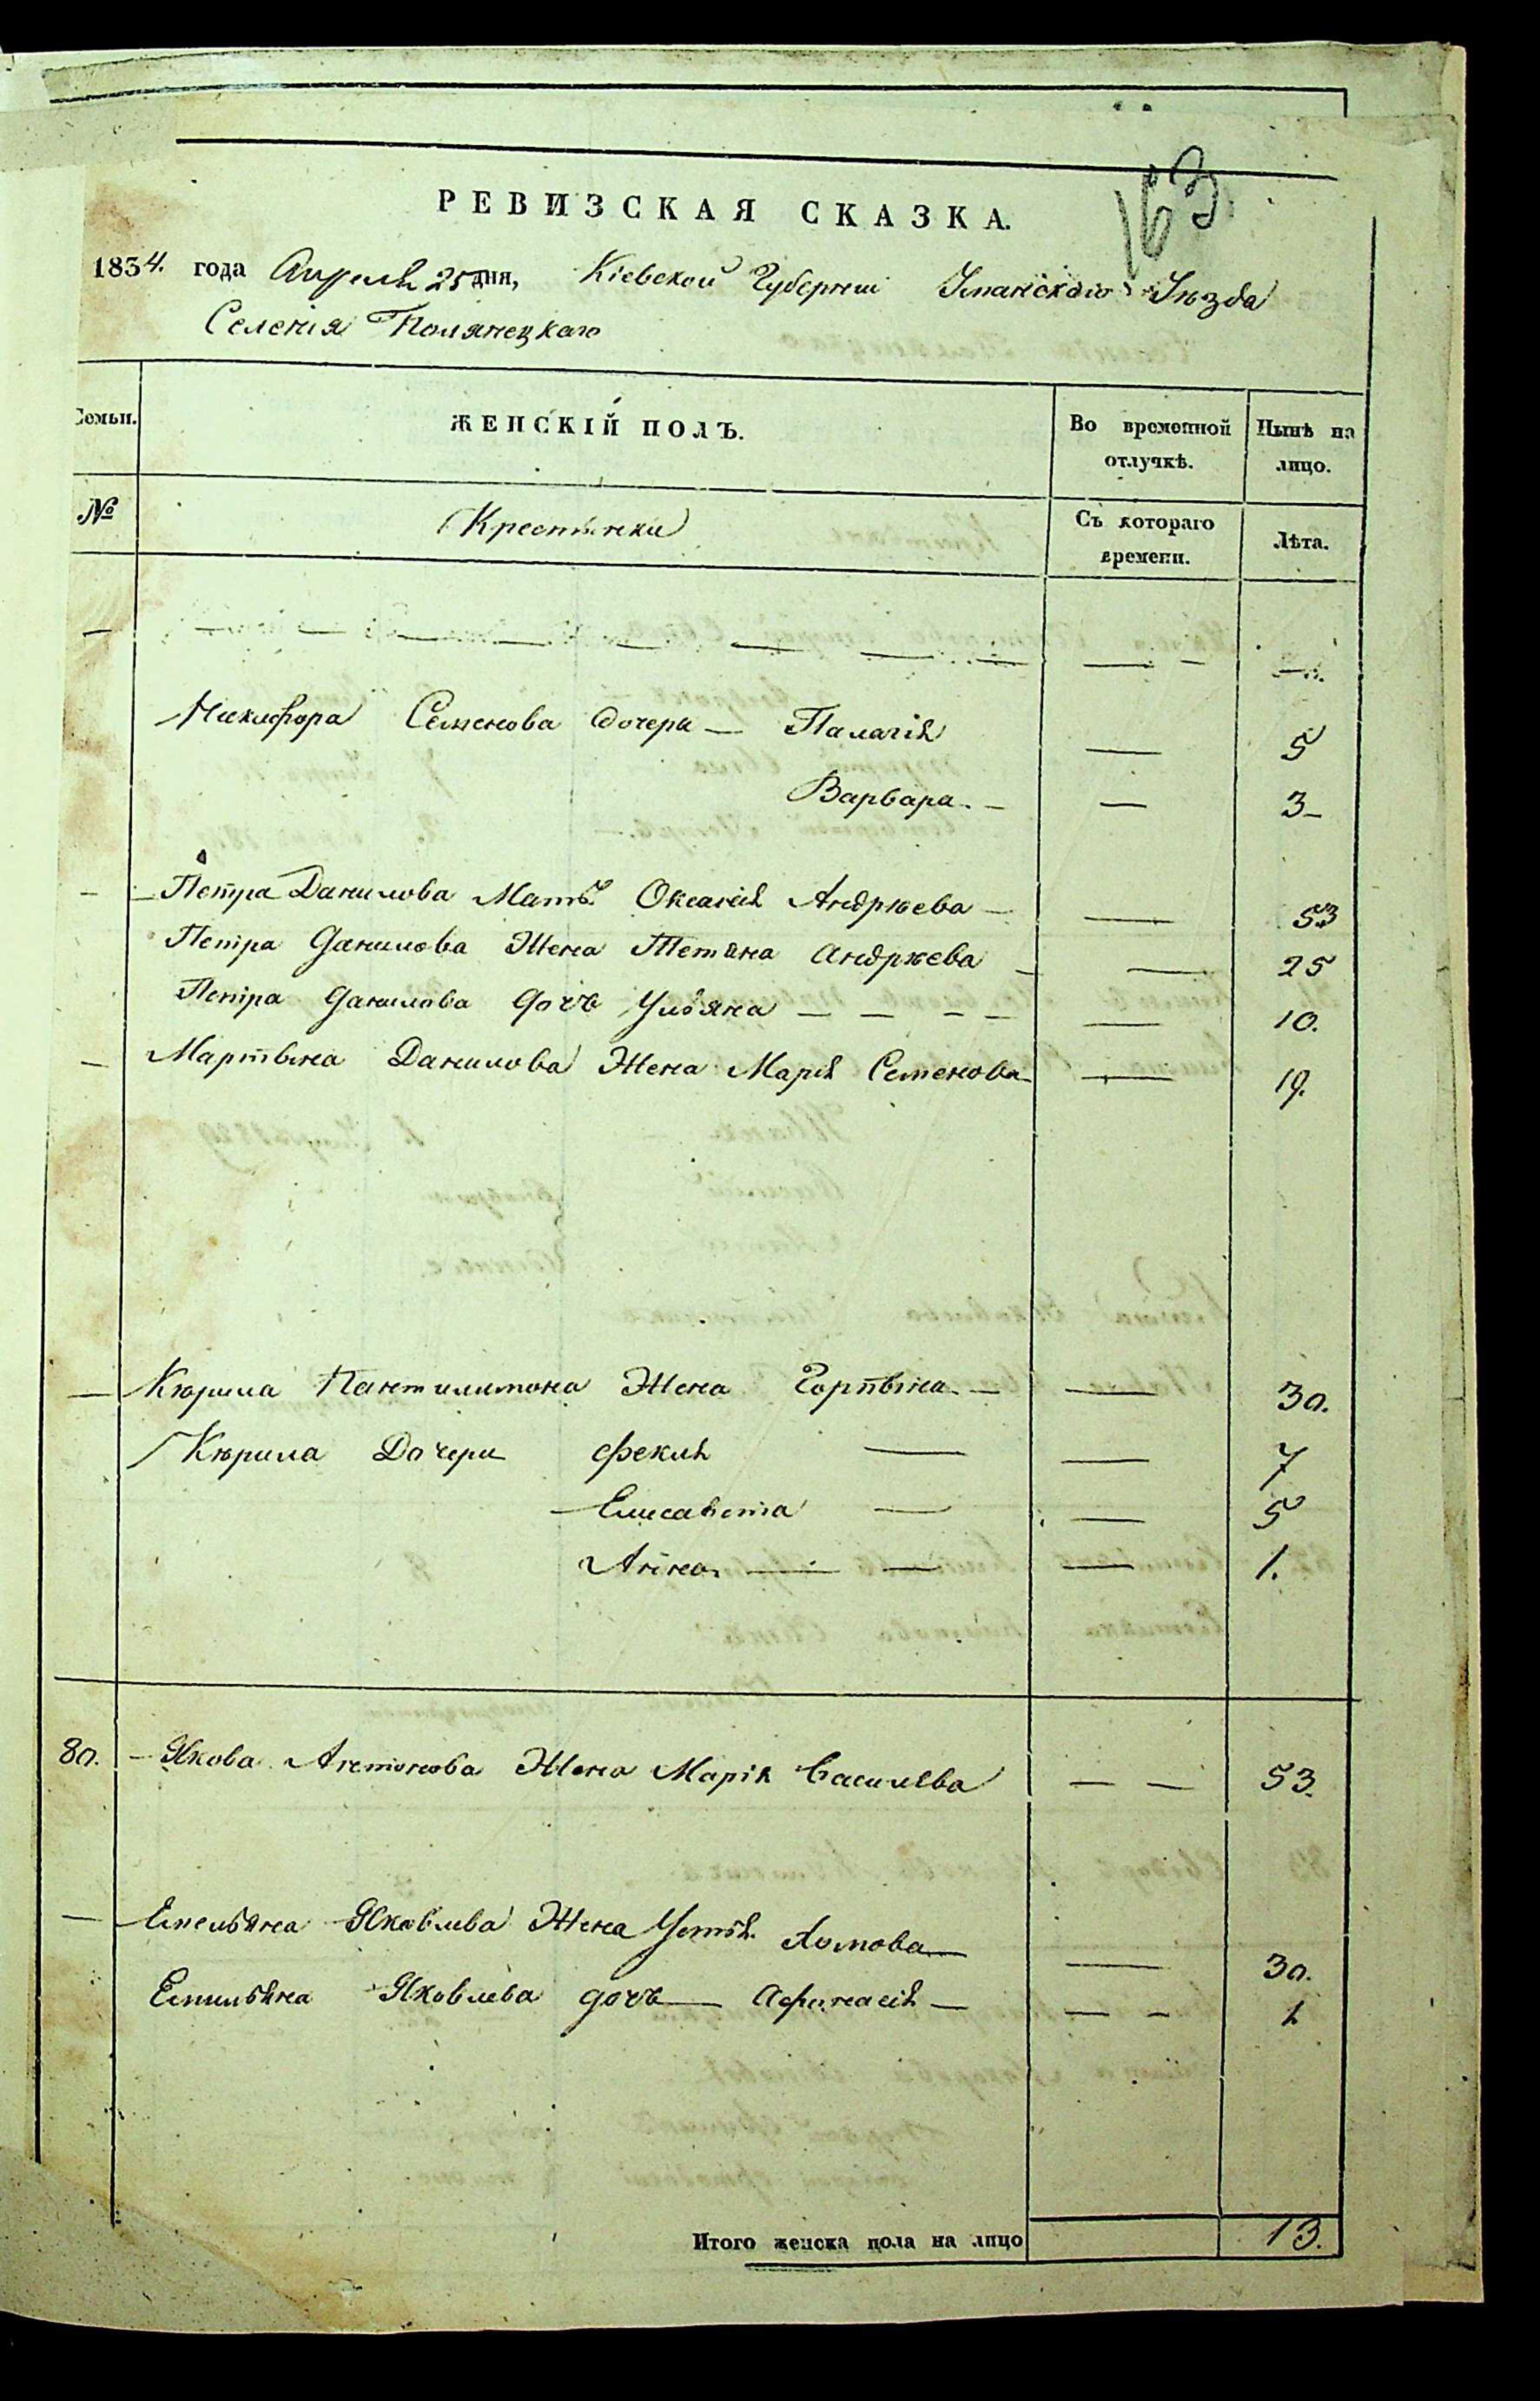 163
РЕВИЗСКАЯ СКАЗКА.
1834. года Апреля 25 дня, Кіевской Губерніи Уманскаго Уезда
Селенія Полянецкаго
Семьи. ЖЕНСКІЙ ПОЛЪ. Во временной отлучкѣ. Нынѣ на лицо.
№ Крестьянки Съ котораго времени. Лѣта.
— — — — — — — — —
Никифора Семенова дочери — Палагія — 5
Варвара — — 3
— Петра Данилова Мать Оксанія Андрѣева — — 53
Петра Данилова Жена Тетяна Андрѣева — — 25
Петра Данилова дочь Ульяна — — — — — 10.
— Мартына Данилова Жена Марія Семенова — 19.
— Кюрила Пантилимона Жена Горпына — — 30.
Кюрила Дочери Фекля — — 7
Елисавета — — 5
Анна — — — 1.
80. — Якова Антонова Жена Марія Василѣва — — 53.
— Емельяна Яковлева Жена Устя Хомова — — 30.
Емильяна Яковлева дочь — Афанасія — — — 1
Итого женска пола на лицо 13.